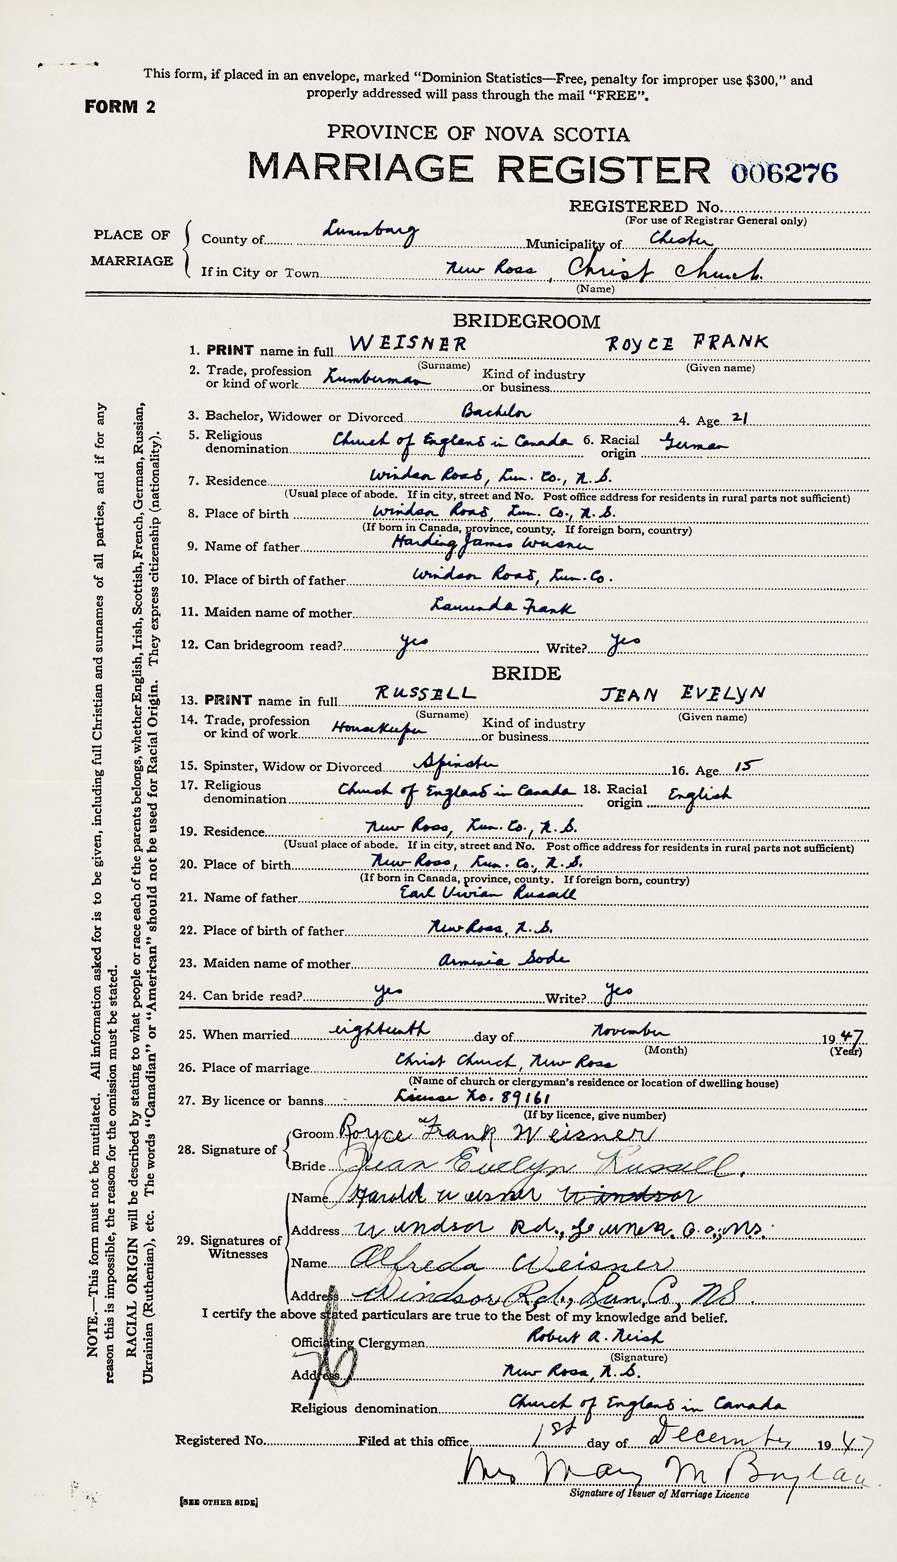 This form, if placed in an envelope, marked “Dominion Statistics—Free, penalty for improper use $300,” and
properly addressed will pass through the mail “FREE”.
FORM 2
PROVINCE OF NOVA SCOTIA
MARRIAGE REGISTER 006276
REGISTERED No.
(For use of Registrar General only)
PLACE OF MARRIAGE
County of Lunenburg Municipality of Chester
If in City or Town New Ross, Christ Church.
(Name)
BRIDEGROOM
1. PRINT name in full WEISNER ROYCE FRANK
(Surname) (Given name)
2. Trade, profession or kind of work Lumberman Kind of industry or business
3. Bachelor, Widower or Divorced Bachelor 4. Age 21
5. Religious denomination Church of England in Canada 6. Racial origin German
7. Residence Windsor Road, Lun. Co., N.S.
(Usual place of abode. If in city, street and No. Post office address for residents in rural parts not sufficient)
8. Place of birth Windsor Road, Lun. Co., N.S.
(If born in Canada, province, county. If foreign born, country)
9. Name of father Harding James Weisner
10. Place of birth of father Windsor Road, Lun. Co.
11. Maiden name of mother Laurinda Frank
12. Can bridegroom read? Yes Write? Yes
BRIDE
13. PRINT name in full RUSSELL JEAN EVELYN
(Surname) (Given name)
14. Trade, profession or kind of work Housekeeper Kind of industry or business
15. Spinster, Widow or Divorced Spinster 16. Age 15
17. Religious denomination Church of England in Canada 18. Racial origin English
19. Residence New Ross, Lun. Co., N.S.
(Usual place of abode. If in city, street and No. Post office address for residents in rural parts not sufficient)
20. Place of birth New Ross, Lun. Co., N.S.
(If born in Canada, province, county. If foreign born, country)
21. Name of father Earl Vivian Russell
22. Place of birth of father New Ross, N.S.
23. Maiden name of mother Armenia
24. Can bride read? Yes Write? Yes
25. When married eighteenth day of November 1947
(Month) (Year)
26. Place of marriage Christ Church, New Ross
(Name of church or clergyman’s residence or location of dwelling house)
27. By licence or banns License No. 89161
(If by licence, give number)
28. Signature of
Groom Royce Frank Weisner
Bride Jean Evelyn Russell.
29. Signatures of Witnesses
Name Harold Weisner Windsor
Address Windsor Rd., N.S.
Name Alfreda Weisner
Address Windsor Rd., Lun. Co, NS.
I certify the above stated particulars are true to the best of my knowledge and belief.
Officiating Clergyman Robert A. Neish
(Signature)
Address New Ross, N.S.
Religious denomination Church of England in Canada
Registered No. Filed at this office 1st day of December 1947
Mrs Mary M Boylan
Signature of Issuer of Marriage Licence
[SEE OTHER SIDE]
NOTE.—This form must not be mutilated. All information asked for is to be given, including full Christian and surnames of all parties, and if for any
reason this is impossible, the reason for the omission must be stated.
RACIAL ORIGIN will be described by stating to what people or race each of the parents belongs, whether English, Irish, Scottish, French, German, Russian,
Ukrainian (Ruthenian), etc. The words “Canadian” or “American” should not be used for Racial Origin. They express citizenship (nationality).